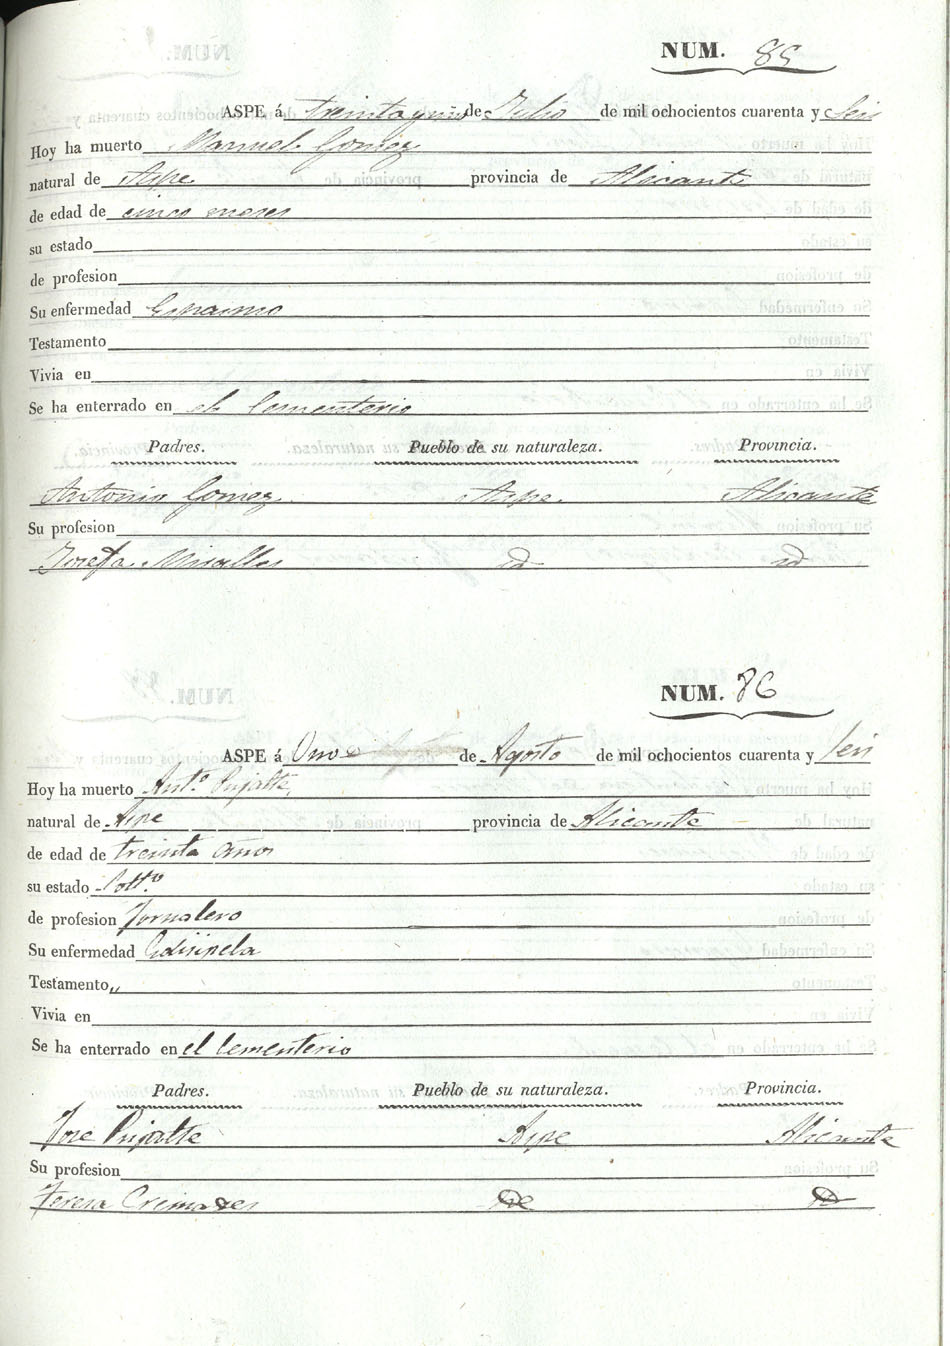 NUM. 85
ASPE á treinta y uno de Julio de mil ochocientos cuarenta y Seis
Hoy ha muerto Manuel Gomez
natural de Aspe provincia de Alicante
de edad de cinco meses
su estado
de profesion
Su enfermedad Espasmo
Testamento
Vivia en
Se ha enterrado en el Cementerio
Padres. Pueblo de su naturaleza. Provincia.
Antonio Gomez Aspe. Alicante
Su profesion
Josefa Miralles id id
NUM. 86
ASPE á Once de Agosto de mil ochocientos cuarenta y seis
Hoy ha muerto Ant.º Pujalte
natural de Aspe provincia de Alicante
de edad de treinta años
su estado Solt.º
de profesion Jornalero
Su enfermedad Edisipela
Testamento „
Vivia en
Se ha enterrado en el Cementerio
Padres. Pueblo de su naturaleza. Provincia.
Jose Pujalte Aspe Alicante
Su profesion
Teresa Cremades